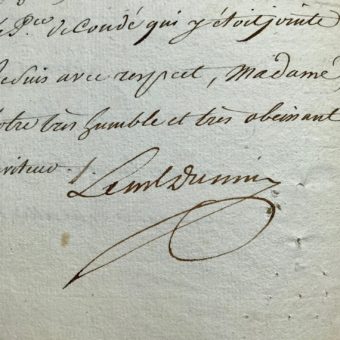 de Condé qui y étoit jointe
Je suis avec respect, Madame,
Votre très humble et très obéissant
serviteur